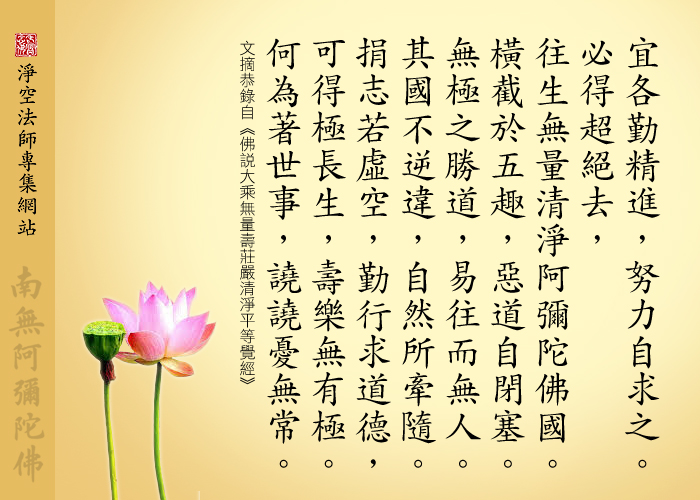 宜各勤精進，努力自求之。
必得超絕去，
往生無量清淨阿彌陀佛國。
橫截於五趣，惡道自閉塞。
無極之勝道，易往而無人。
其國不逆違，自然所牽隨。
捐志若虛空，勤行求道德，
可得極長生，壽樂無有極。
何為著世事，譊譊憂無常。
文摘恭錄自《佛説大乘無量壽莊嚴清淨平等覺經》
淨空法師專集網站
南無阿彌陀佛